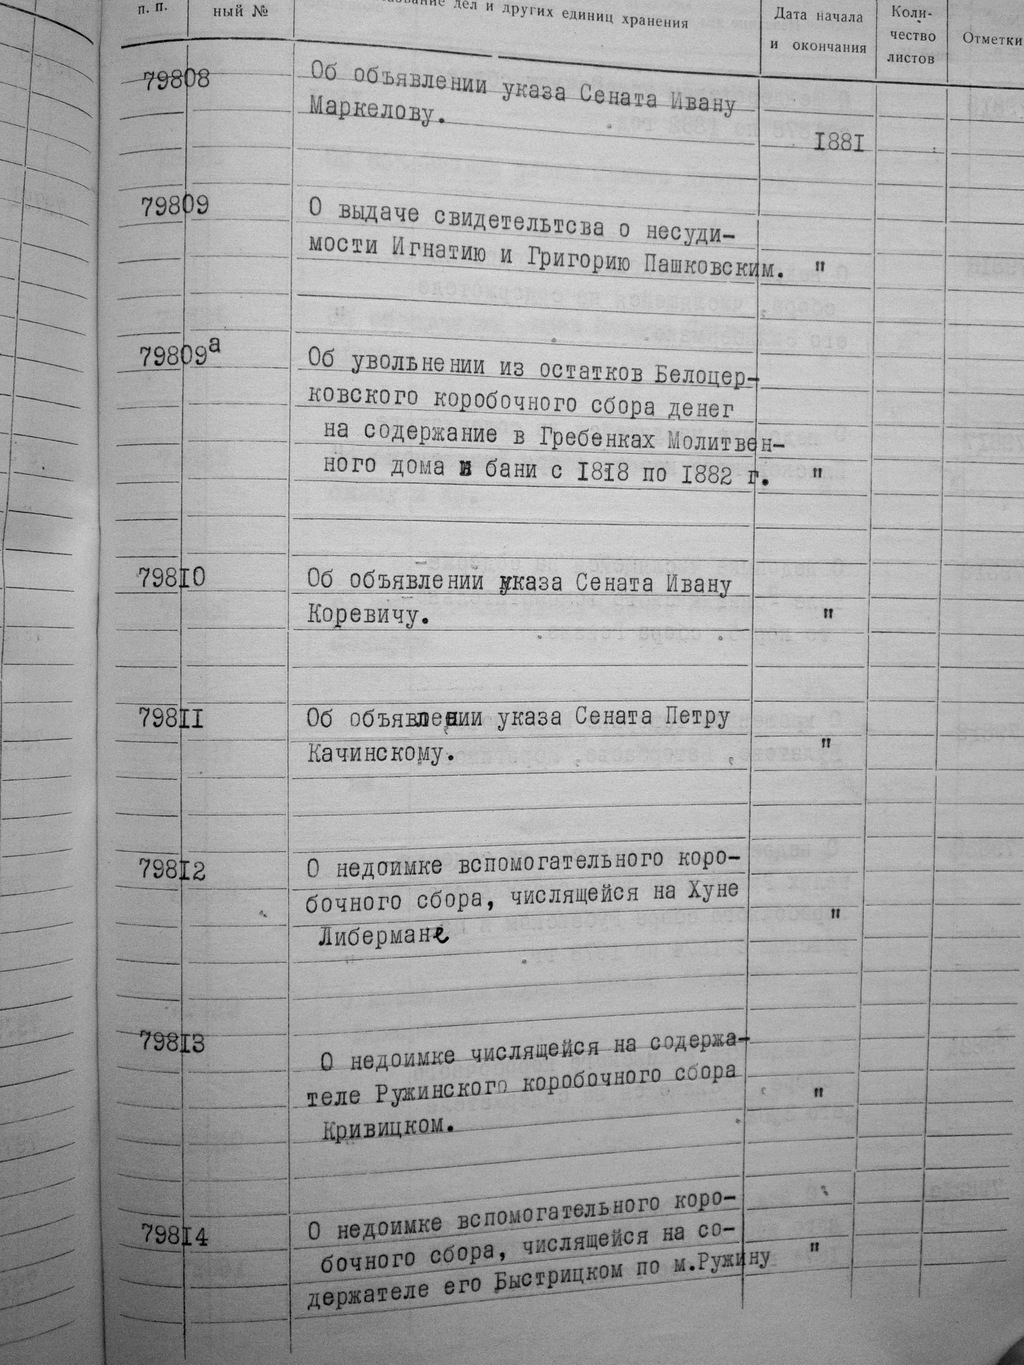 п. п.
ный №
дел и других единиц хранения
Дата начала
и окончания
Коли-
чество
листов
Отметки
79808
Об объявлении указа Сената Ивану
Маркелову.
1881
79809
О выдаче свидетельтсва о несуди-
мости Игнатию и Григорию Пашковским. "
79809а
Об увольнении из остатков Белоцер-
ковского коробочного сбора денег
на содержание в Гребенках Молитвен-
ного дома и бани с 1818 по 1882 г. "
79810
Об объявлении указа Сената Ивану
Коревичу. "
79811
Об объявлении указа Сената Петру
Качинскому. "
79812
О недоимке вспомогательного коро-
бочного сбора, числящейся на Хуне
Либермане "
79813
О недоимке числящейся на содержа-
теле Ружинского коробочного сбора "
Кривицком.
79814
О недоимке вспомогательного коро-
бочного сбора, числящейся на со-
держателе его Быстрицком по м.Ружину "